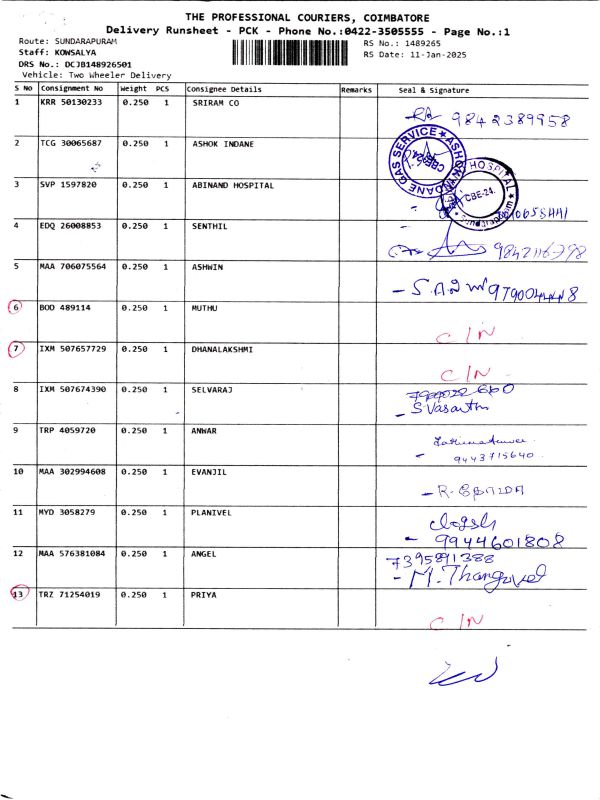 THE PROFESSIONAL COURIERS, COIMBATORE
Delivery Runsheet - PCK - Phone No.:0422-3505555 - Page No.:1
Route: SUNDARAPURAM RS No.: 1489265
Staff: KOWSALYA RS Date: 11-Jan-2025
DRS No.: DCJB148926501
Vehicle: Two Wheeler Delivery
S No Consignment No Weight PCS Consignee Details Remarks Seal & Signature
1 KRR 50130233 0.250 1 SRIRAM CO
9842389958
2 TCG 30065687 0.250 1 ASHOK INDANE
ASHOK INDANE GAS SERVICE
CBE-24.
3 SVP 1597820 0.250 1 ABINAND HOSPITAL
HOSPITAL
CBE-24.
Sundarapuram
4 EDQ 26008853 0.250 1 SENTHIL
9842116798
5 MAA 706075564 0.250 1 ASHWIN
6 BOD 489114 0.250 1 MUTHU
C/N
7 IXM 507657729 0.250 1 DHANALAKSHMI
C/N
8 IXM 507674390 0.250 1 SELVARAJ
- S Vasanth
9 TRP 4059720 0.250 1 ANWAR
- 9443715640.
10 MAA 302994608 0.250 1 EVANJIL
11 MYD 3058279 0.250 1 PLANIVEL
- 9944601808
12 MAA 576381084 0.250 1 ANGEL
7395891388
- M. Thangavel
13 TRZ 71254019 0.250 1 PRIYA
C/N